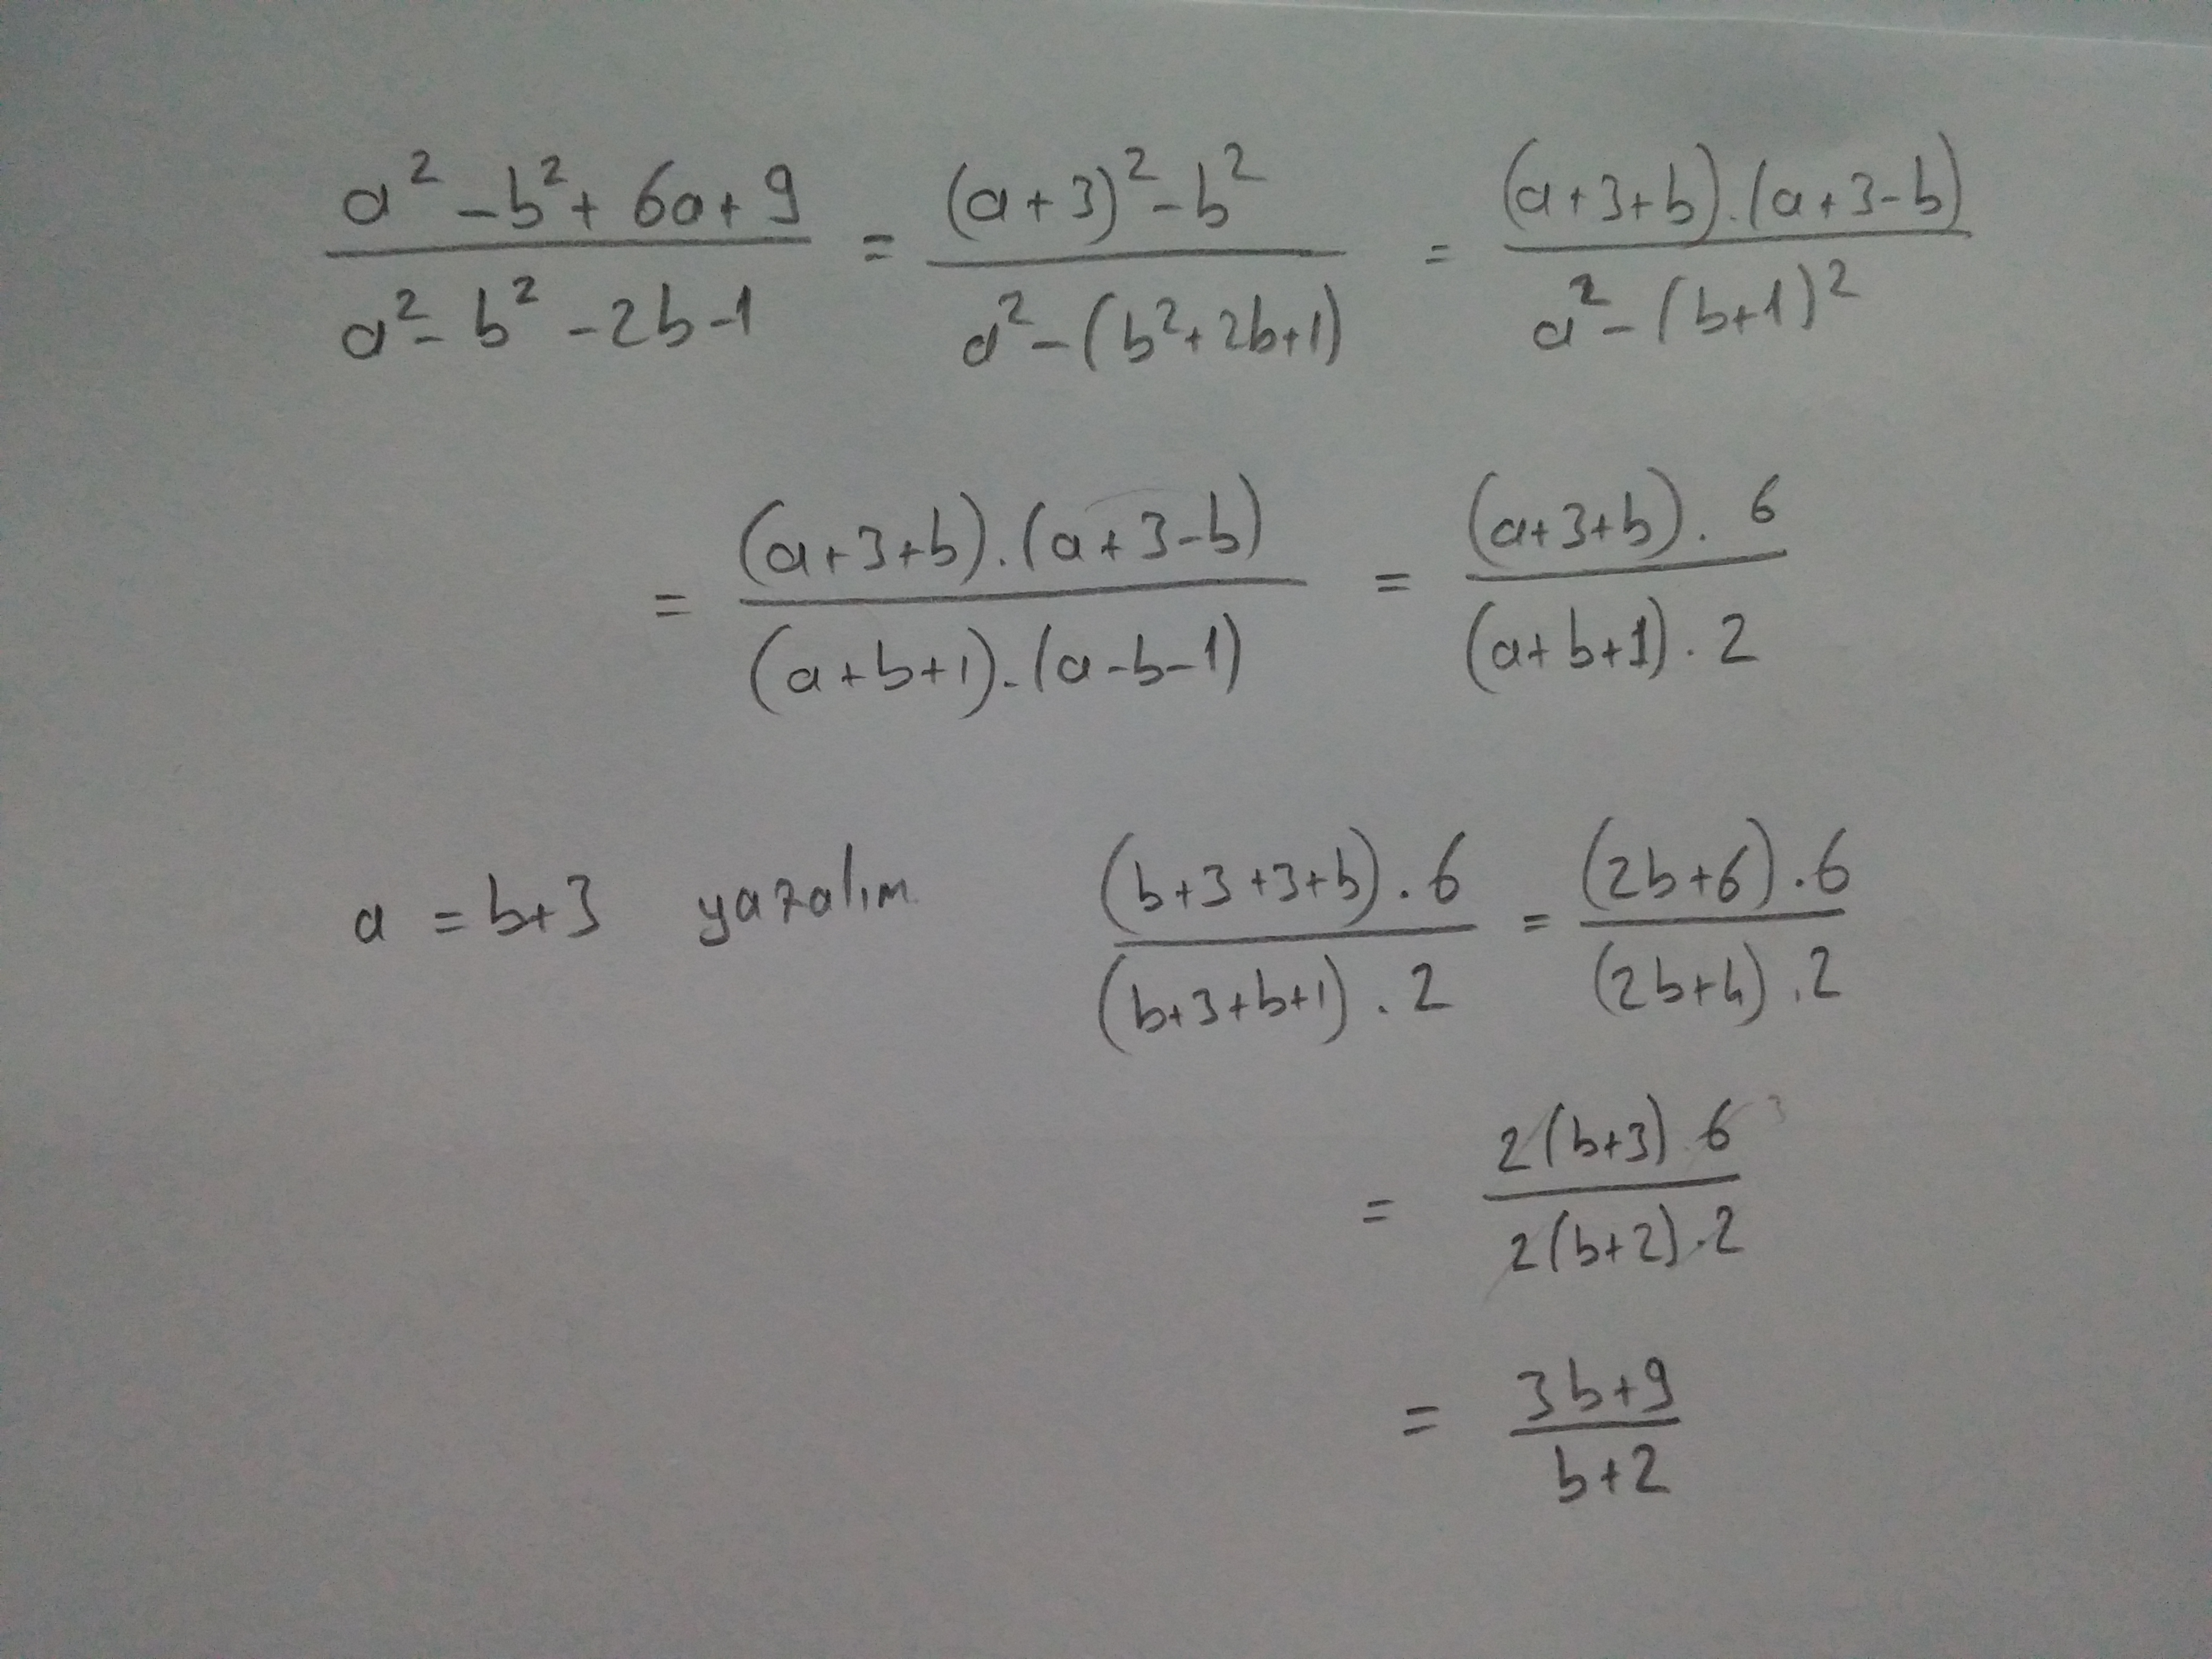 (a² - b² + 6a + 9)/(a² - b² - 2b - 1) = ((a+3)² - b²)/(a² - (b² + 2b + 1)) = ((a+3+b).(a+3-b))/(a² - (b+1)²)
= ((a+3+b).(a+3-b))/((a+b+1).(a-b-1)) = ((a+3+b).6)/((a+b+1).2)
a = b+3 yazalım ((b+3+3+b).6)/((b+3+b+1).2) = ((2b+6).6)/((2b+4).2)
= (2(b+3).6 3)/(2(b+2).2)
= (3b+9)/(b+2)